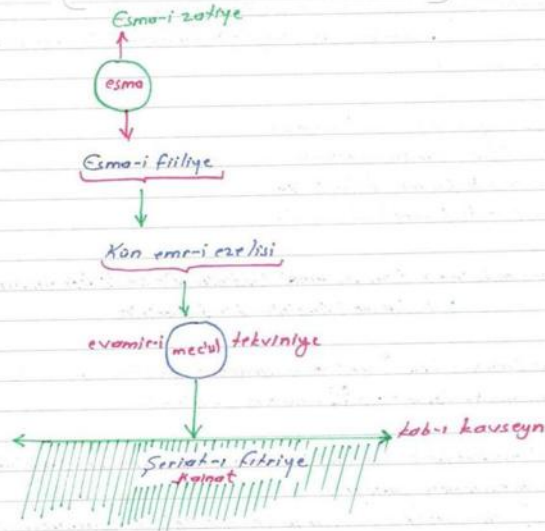 Esma-i zatiye
esma
Esma-i fiiliye
Kün emr-i ezelisi
evamir-i mec'ul tekviniye
kab-ı kavseyn
Şeriat-ı fıtriye
kainat